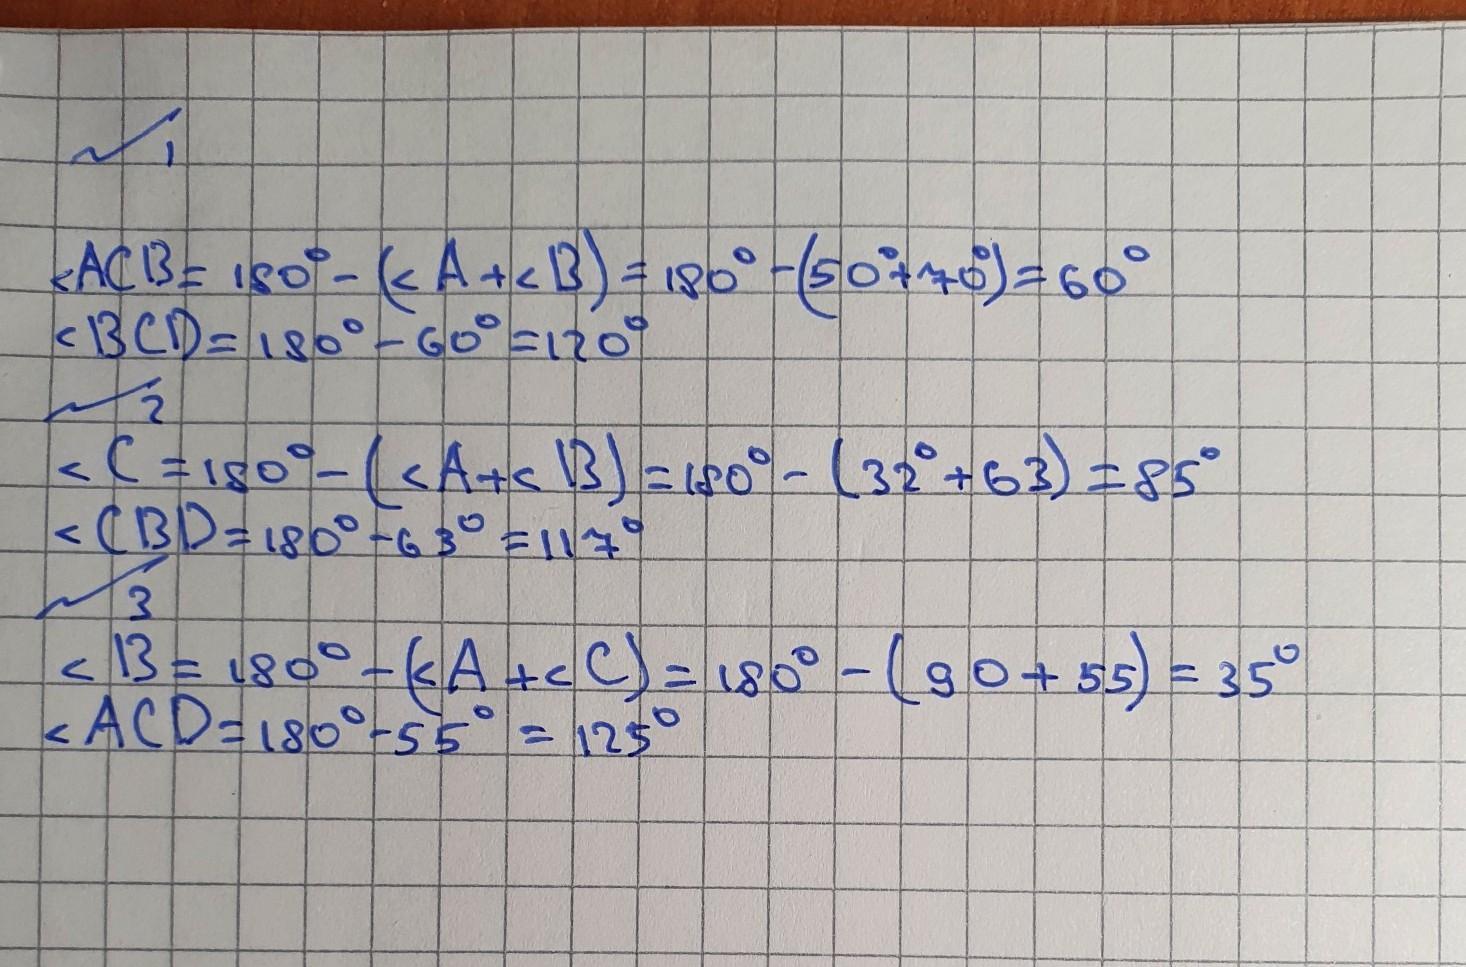 №1
<ACB=180°-(<A+<B)=180°-(50°+70°)=60°
<BCD=180°-60°=120°
№2
<C=180°-(<A+<B)=180°-(32°+63)=85°
<CBD=180°-63°=117°
№3
<B=180°-(<A+<C)=180°-(90+55)=35°
<ACD=180°-55°=125°